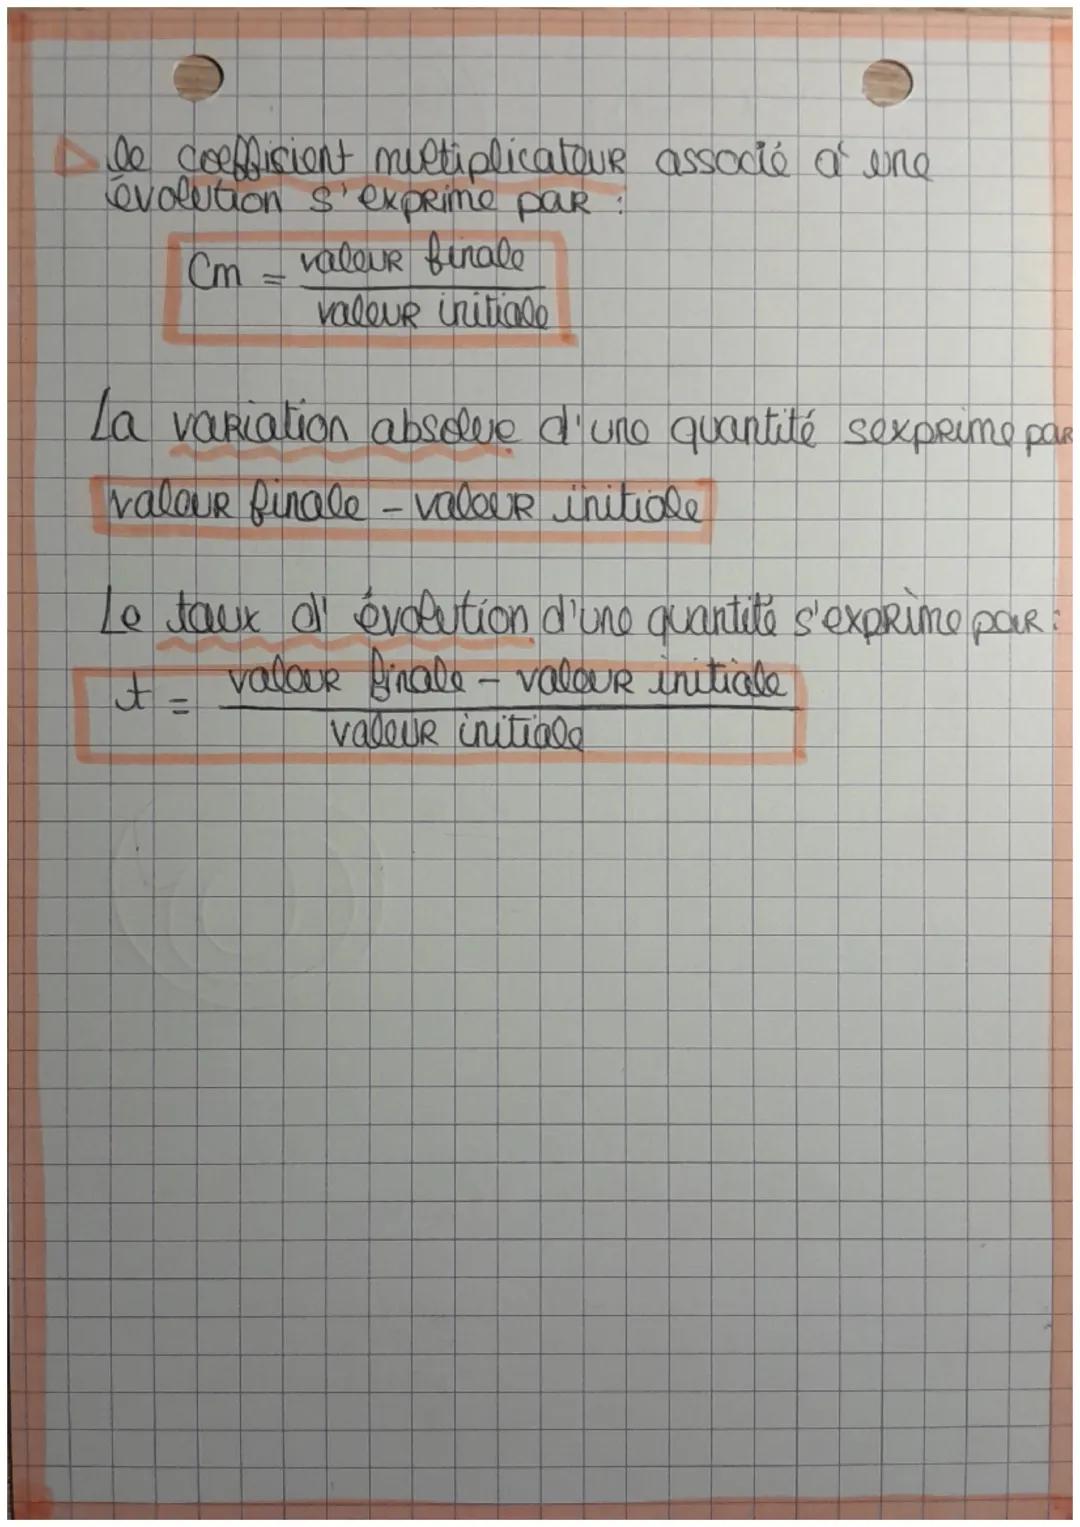 Le coefficient multiplicateur associé à une
évolution s'exprime par :
Cm = valeur finale
valeur initiale
La variation absolue d'une quantité s'exprime par
valeur finale - valeur initiale
Le taux d'évolution d'une quantité s'exprime par :
t = valeur finale - valeur initiale
valeur initiale